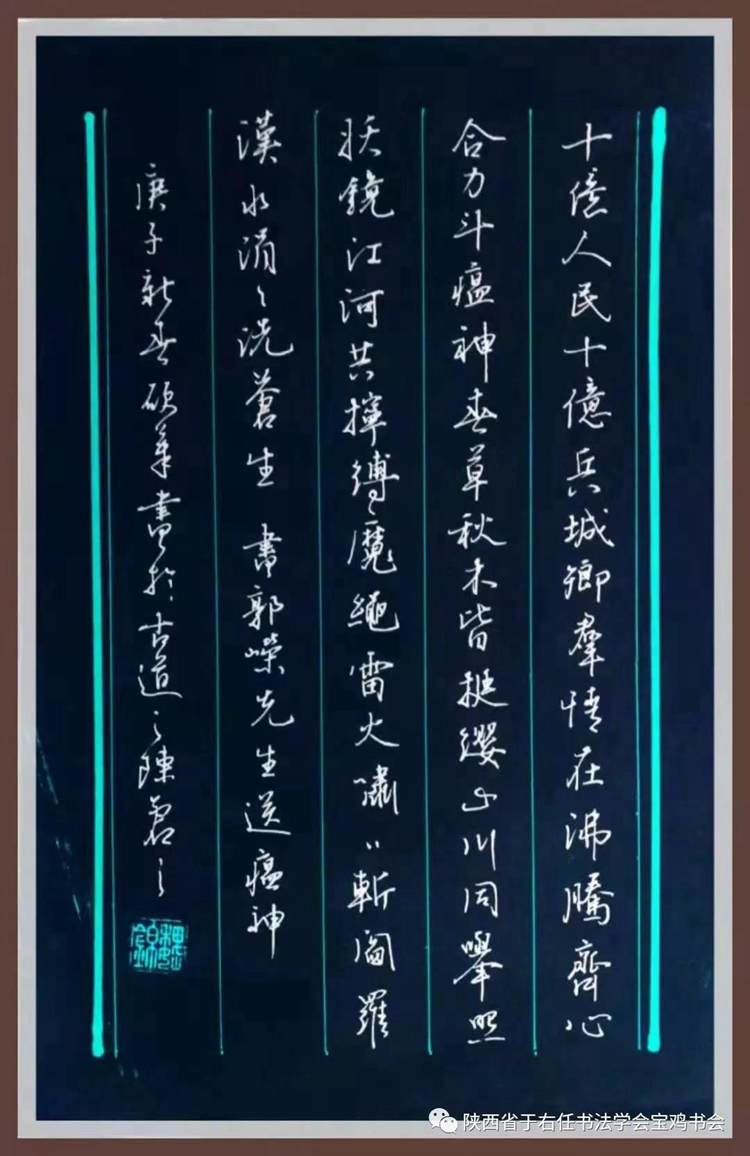 十億人民十億兵城鄉羣情在沸騰齊心
合力斗瘟神春草秋木皆挺纓山川同擧照
妖鏡江河共擰縛魔繩雷火嘯〻斬閻羅
漢水涓〻洗蒼生 書郭嶸先生送瘟神
庚子新春硬筆書於古道之陳倉
陕西省于右任书法学会宝鸡书会